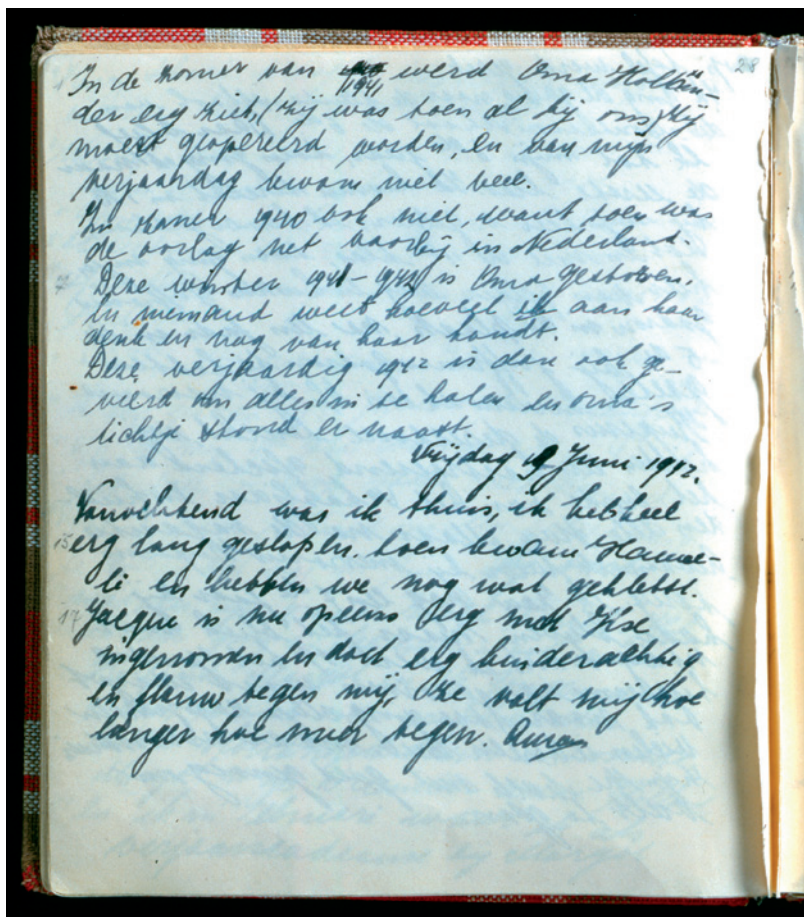 28
In de zomer van 1941 werd Oma Hollän-
der erg ziek, (zij was toen al bij ons) zij
moest geopereerd worden, en van mijn
verjaardag kwam niet veel.
In zomer 1940 ook niet, want toen was
de oorlog net voorbij in Nederland.
Deze winter 1941-1942 is Oma gestorven.
En niemand weet hoeveel ik aan haar
denk en nog van haar houdt.
Deze verjaardig 1942 is dan ook ge-
vierd om alles in te halen en oma's
lichtje stond er naast.
Vrijdag 19 Juni 1942.
Vanochtend was ik thuis, ik heb heel
15 erg lang geslapen, toen kwam Hanne-
li en hebben we nog wat gekletst.
17 Jacque is nu opeens erg met Ilse
ingenomen en doet erg kinderachtig
en flauw tegen mij, ze valt mij hoe
langer hoe meer tegen.